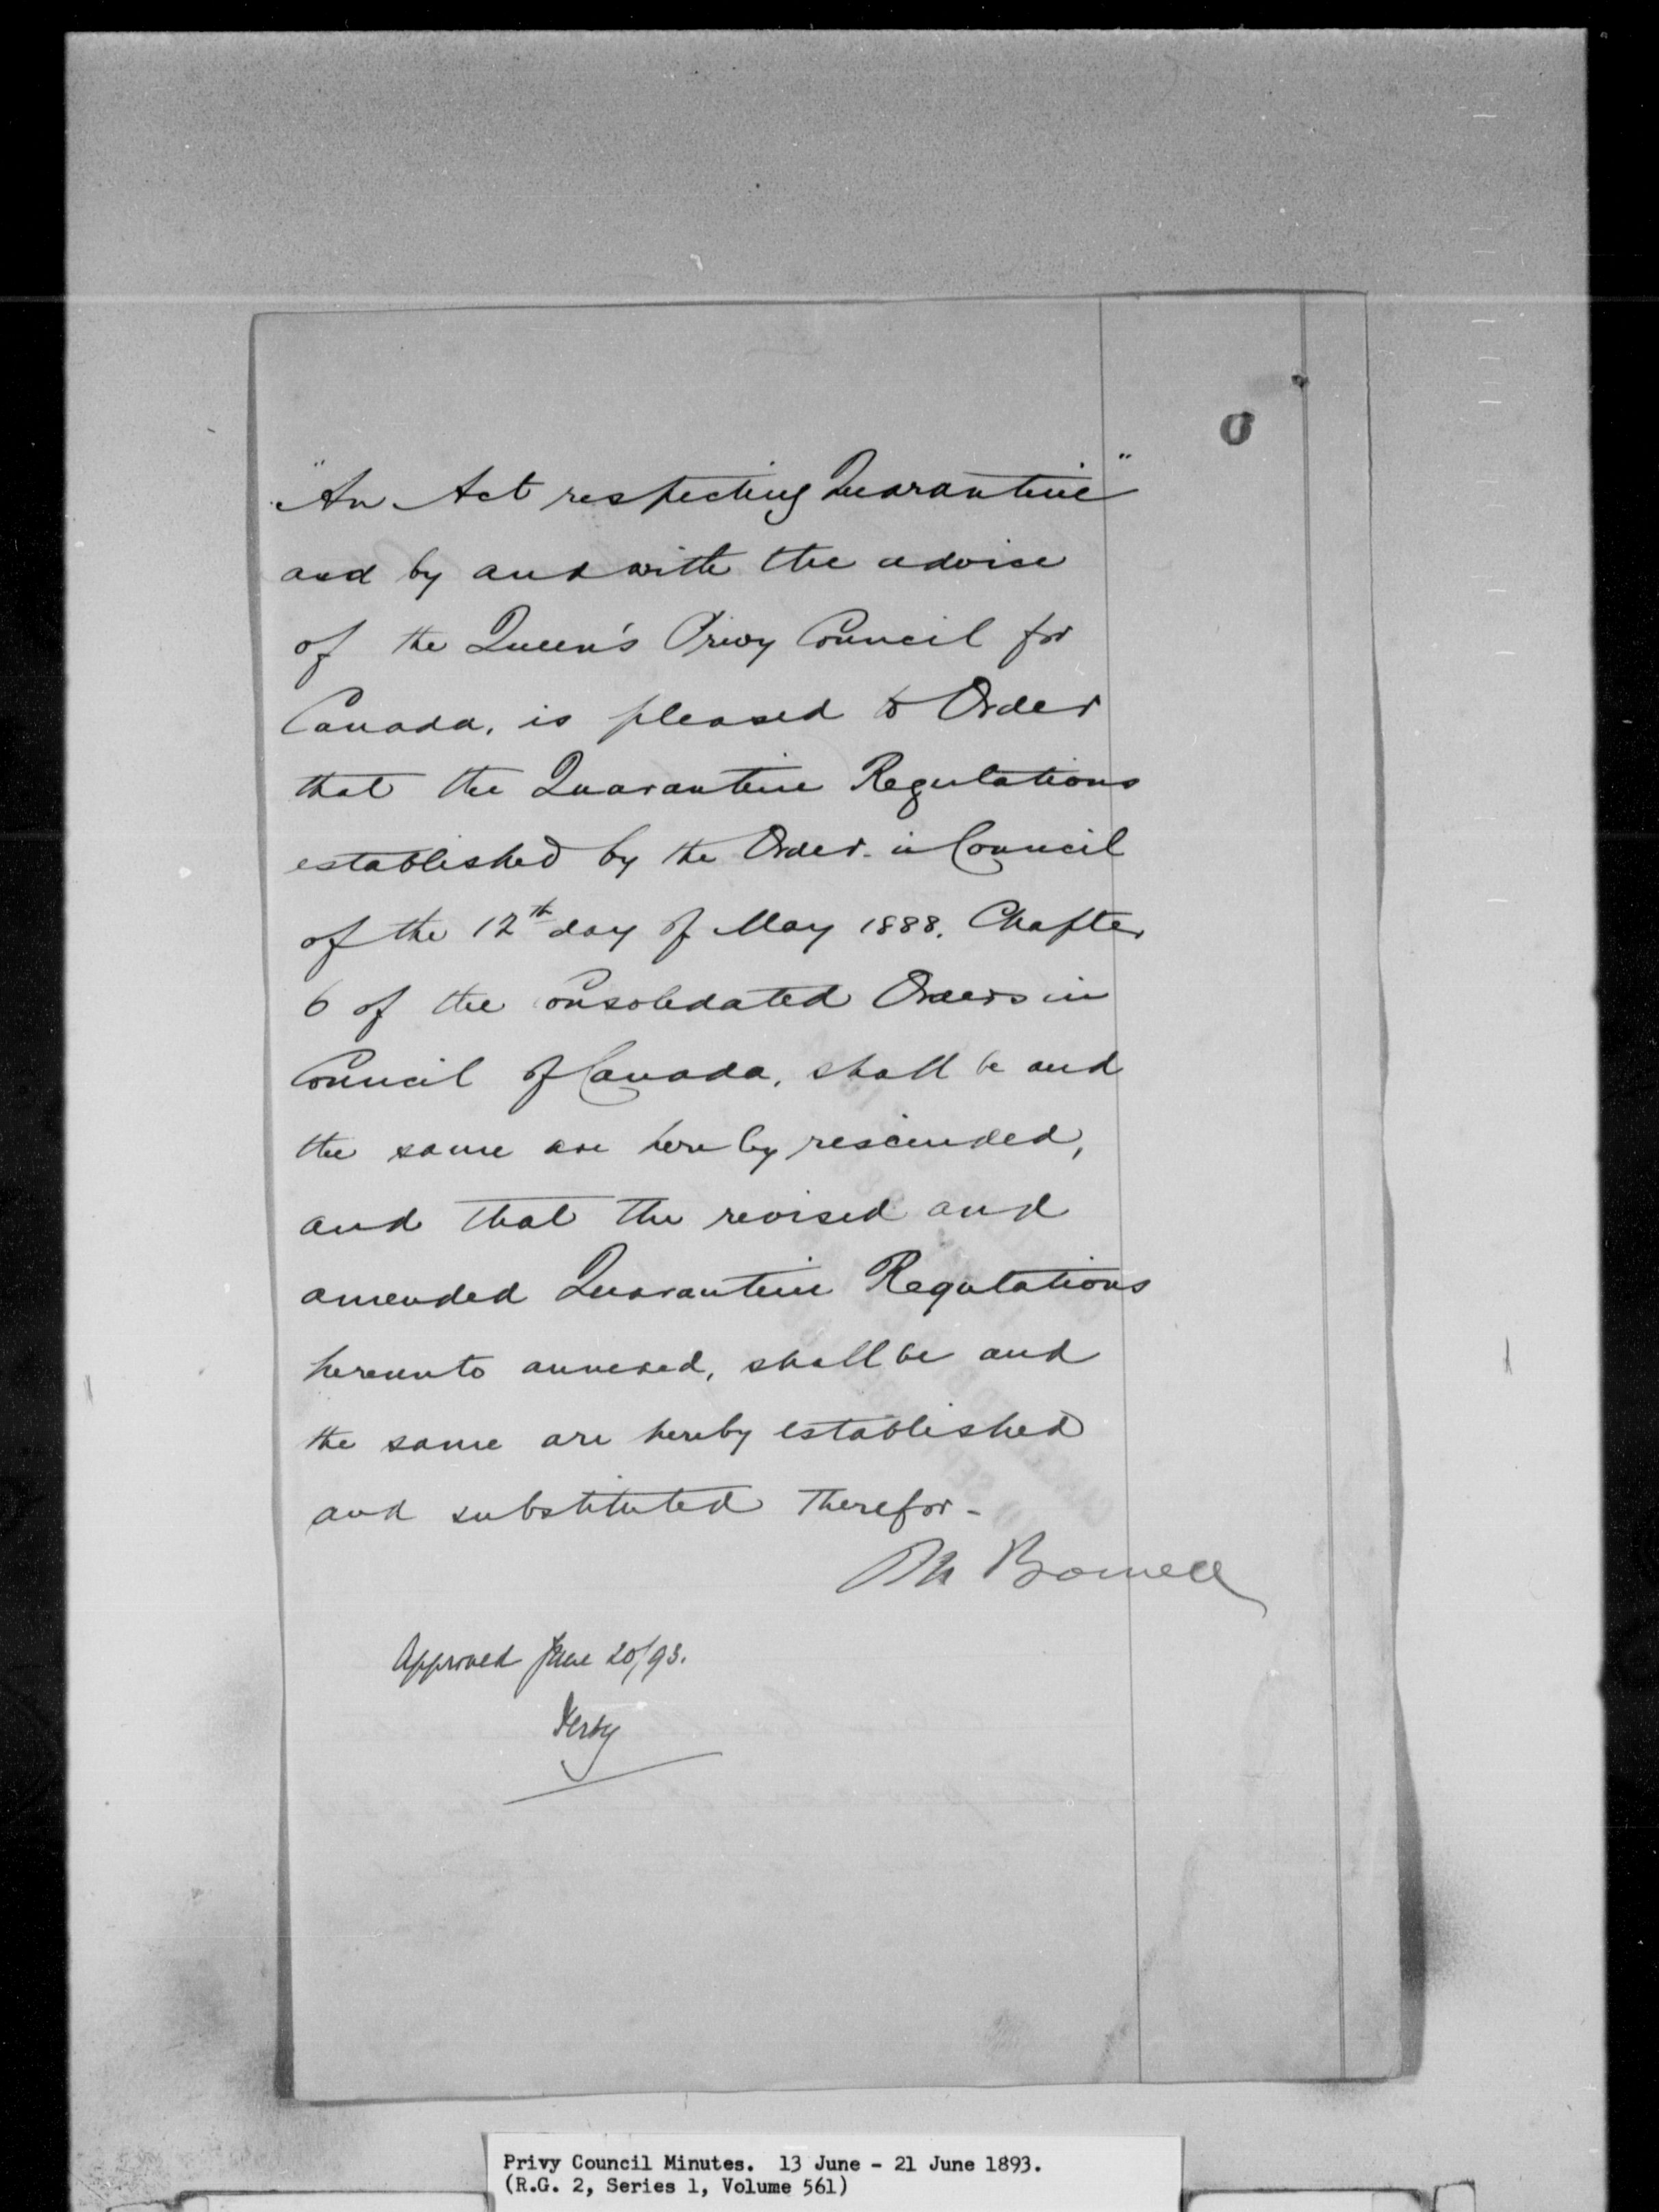 "An Act respecting Quarantine"
and by and with the advice
of the Queen's Privy Council for
Canada, is pleased to Order
that the Quarantine Regulations
established by the Order in Council
of the 12th day of May 1888. Chapter
6 of the Consolidated Orders in
Council of Canada, shall be and
the same are hereby rescinded,
and that the revised and
amended Quarantine Regulations
hereunto annexed, shall be and
the same are hereby established
and substituted therefor -
M Bowell
Approved June 20/93.
Privy Council Minutes. 13 June - 21 June 1893.
(R.G. 2, Series 1, Volume 561)